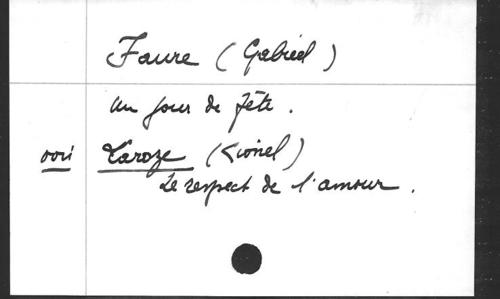 Faure (Gabriel)
un jour de fête.
voir Laroze (Lionel)
Le respect de l'amour.